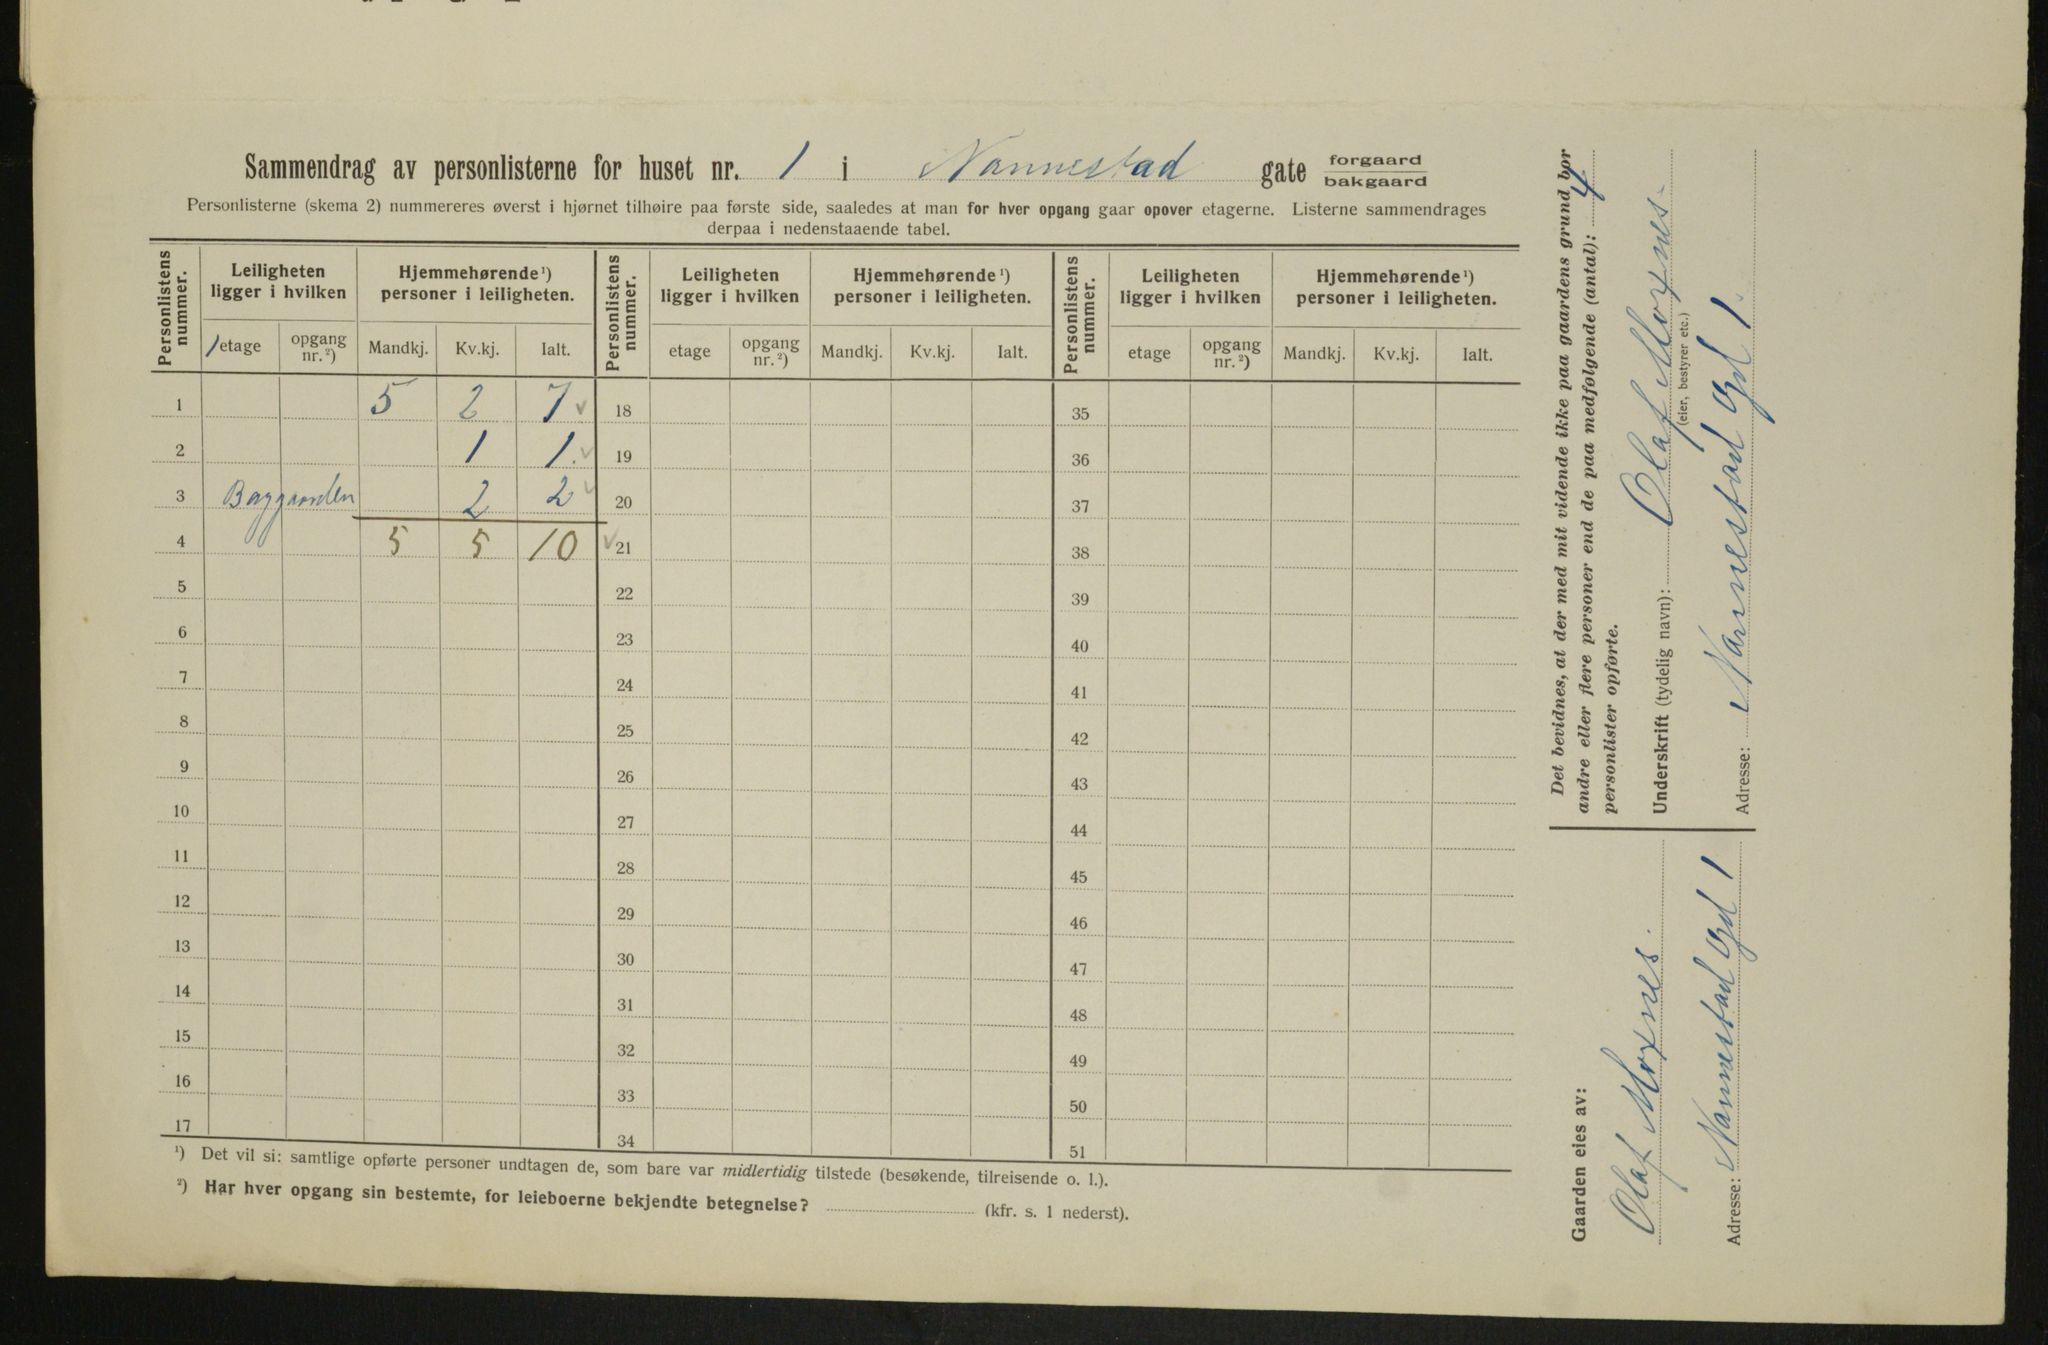 Sammendrag av personlisterne for huset nr. 1 i Nannestad gate forgaard
bakgaard
Personlisterne (skema 2) nummereres øverst i hjørnet tilhøire paa første side, saaledes at man for hver opgang gaar opover etagerne. Listerne sammendrages
derpaa i nedenstaaende tabel.
Personlistens nummer. Leiligheten ligger i hvilken Hjemmehørende¹) personer i leiligheten. Personlistens nummer. Leiligheten ligger i hvilken Hjemmehørende¹) personer i leiligheten. Personlistens nummer. Leiligheten ligger i hvilken Hjemmehørende¹) personer i leiligheten.
1 etage opgang nr.²) Mandkj. Kv.kj. Ialt. etage opgang nr.²) Mandkj. Kv.kj. Ialt. etage opgang nr.²) Mandkj. Kv.kj. Ialt.
1 5 2 7 18 35
2 1 1 19 36
3 Baggaarden 2 2 20 37
4 5 5 10 21 38
5 22 39
6 23 40
7 24 41
8 25 42
9 26 43
10 27 44
11 28 45
12 29 46
13 30 47
14 31 48
15 32 49
16 33 50
17 34 51
¹) Det vil si: samtlige opførte personer undtagen de, som bare var midlertidig tilstede (besøkende, tilreisende o. l.).
²) Har hver opgang sin bestemte, for leieboerne bekjendte betegnelse? (kfr. s. 1 nederst).
Gaarden eies av:
Olaf Moxnes.
Adresse: Nannestad Gd 1
Det bevidnes, at der med mit vidende ikke paa gaardens grund bor
andre eller flere personer end de paa medfølgende (antal): 4
personlister opførte.
Underskrift (tydelig navn): Olaf Moxnes.
(eier, bestyrer etc.)
Adresse: Nannestad Gd 1.